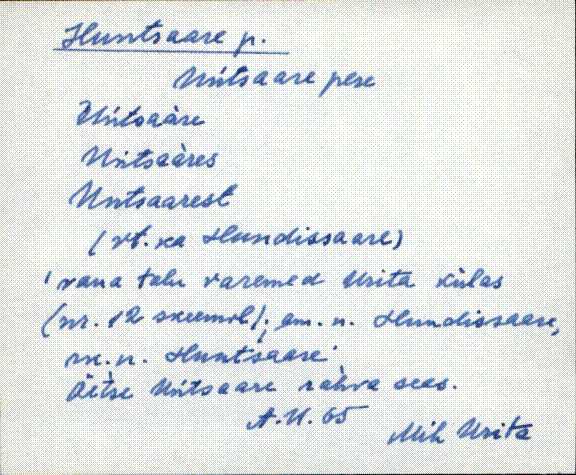 Huntsaare p.
Untsaare pere
Untsaàre
Untsaàres
Untsaarest
(vt. ka Hundissaare)
' vana talu varemed Urita külas
(nr. 12 skeemil); am. n. Hundissaare,
rk. n. Huntsaare'
Öetse Untsaare rahva seas.
A.U. 65
Mih Urita